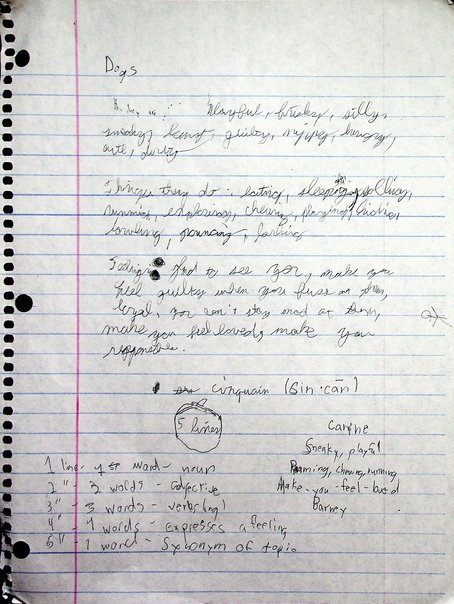 Dogs
Playful, frisky, silly,
sneaky, guilty, hungry,
cute, dirty
Things they do : eating, sleeping, rolling,
running, exploring, chewing, playing,
howling, pouncing, barking
Feelings to see you, make you
feel guilty when you fuss at them,
loyal, you can't stay mad at them,
make you feel loved, make you
cinquain (sin·cān)
5 lines
Canine
Sneaky, playful
Roaming, chewing, running
Make-you-feel-
Barney
1 line - 1 word - noun
2 " - 2 words - adjective
3 " - 3 words - verbs
4 " - 4 words - expresses a feeling
5 " - 1 word - Synonym of topic